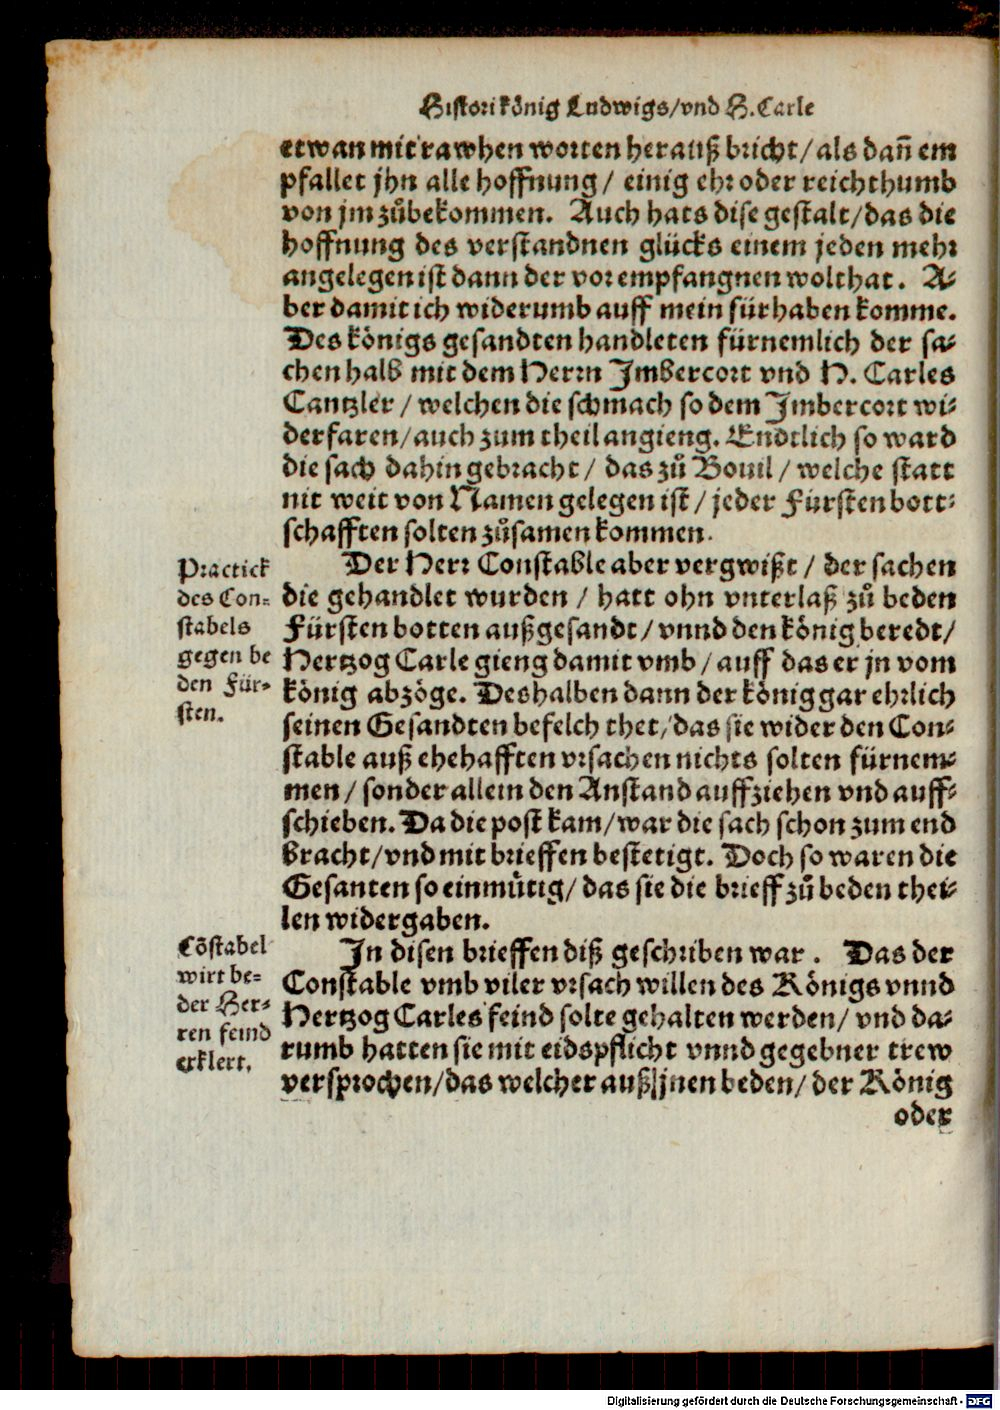 Histori könig Ludwigs/vnd H. Carle
etwan mit rawhen worten herauß bricht/als dañ em
pfallet jhn alle hoffnung/ einig ehr oder reichthumb
von jm zůbekommen. Auch hats dise gestalt/das die
hoffnung des verstandnen glücks einem jeden mehr
angelegen ist dann der vor empfangnen wolthat. A-
ber damit ich widerumb auff mein fürhaben komme.
Des königs gesandten handleten fürnemlich der sa-
chen halb mit dem Herrn Jmbercort vnd H. Carles
Cantzler/ welchen die schmach so dem Jmbercort wi-
derfaren/auch zum theil angieng. Endtlich so ward
die sach dahin gebracht/ das zů Bouil/ welche statt
nit weit von Namen gelegen ist/ jeder Fürsten bott-
schafften solten zůsamen kommen.
Practick
des Con-
stabels
gegen be
den Für-
sten.
Der Herr Constable aber vergwißt/ der sachen
die gehandlet wurden/ hatt ohn vnterlaß zů beden
Fürsten botten außgesandt/ vnnd den könig beredt/
Hertzog Carle gieng damit vmb/ auff das er jn vom
könig abzöge. Deshalben dann der könig gar ehrlich
seinen Gesandten befelch thet/das sie wider den Con-
stable auß ehehafften vrsachen nichts solten fürnem-
men/ sonder allein den Anstand auffziehen vnd auff-
schieben. Da die post kam/war die sach schon zum end
bracht/vnd mit brieffen bestetigt. Doch so waren die
Gesanten so einmütig/ das sie die brieff zů beden thei-
len widergaben.
Cõstabel
wirt be-
der Her-
ren feind
erklert.
In disen brieffen diß geschriben war. Das der
Constable vmb viler vrsach willen des Königs vnnd
Hertzog Carles feind solte gehalten werden/ vnd da-
rumb hatten sie mit eidspflicht vnnd gegebner trew
versprochen/das welcher auß jnen beden/ der König
oder
Digitalisierung gefördert durch die Deutsche Forschungsgemeinschaft - DFG